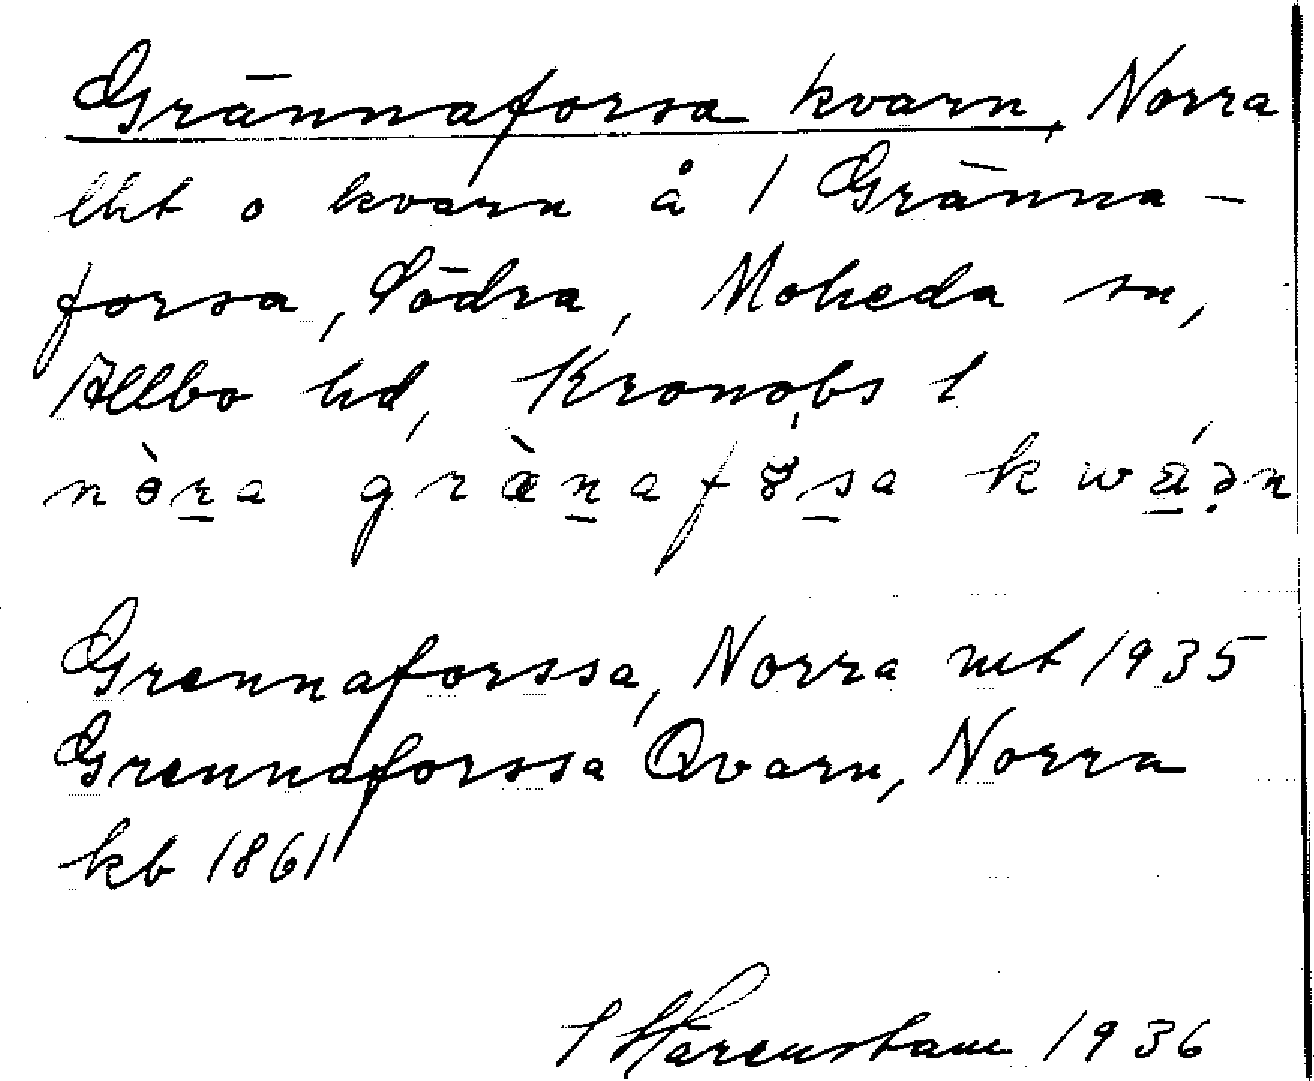 Grännaforsa kvarn, Norra
lht o kvarn å 1 Gränna-
forsa, Södra, Moheda sn,
Allbo hd, Kronobs l
Grennaforssa, Norra mt 1935
Grennaforssa Qvarn, Norra
kb 1861
1936